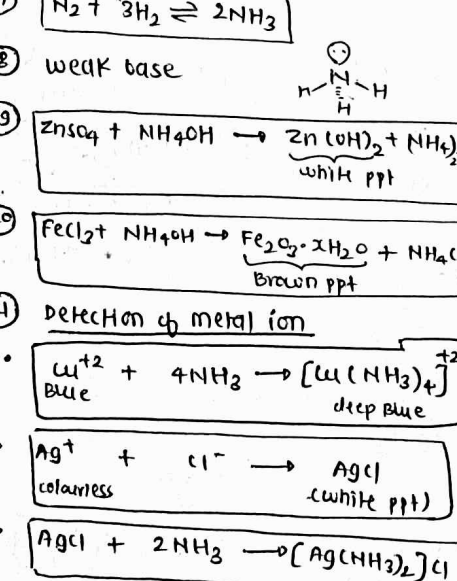 N2 + 3H2 ⇌ 2NH3
8 weak base
N
H H
H
9 ZnSO4 + NH4OH → Zn(OH)2 + (NH4)2
white ppt
FeCl3 + NH4OH → Fe2O3·xH2O + NH4C
Brown ppt
Detection of metal ion
• Cu+2 + 4NH3 → [Cu(NH3)4]+2
Blue deep Blue
Ag+ + Cl- → AgCl
colourless (white ppt)
AgCl + 2NH3 → [Ag(NH3)2]Cl